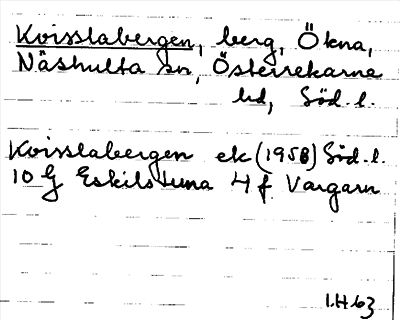 Kvisslabergen, berg, Ökna,
Näshulta sn, Österrekarne
hd, Söd. l.
Kvisslabergen ek (1958) Söd. l.
10 G Eskilstuna 4 f Vargarn
I.H. 63